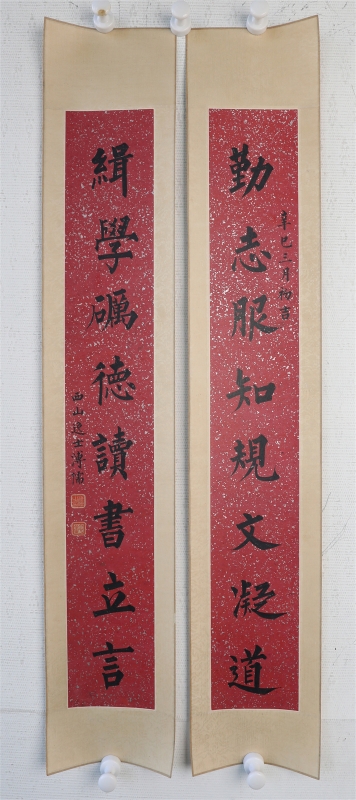 勤志服知規文凝道
辛巳三月初吉
緝學礪德讀書立言
西山逸士溥儒